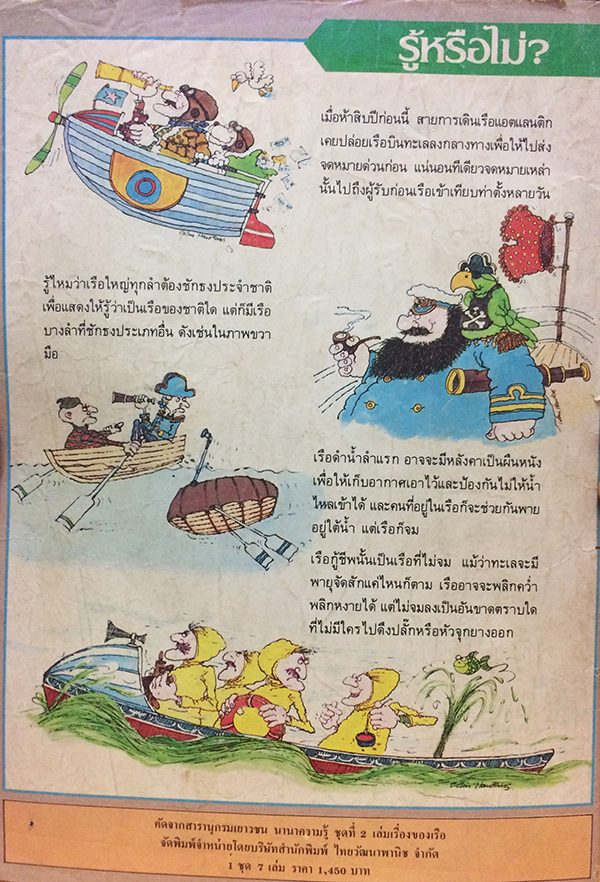 รู้หรือไม่?
เมื่อห้าสิบปีก่อนนี้ สายการเดินเรือแอตแลนติก
เคยปล่อยเรือบินทะเลลงกลางทางเพื่อให้ไปส่ง
จดหมายด่วนก่อน แน่นอนทีเดียวจดหมายเหล่า
นั้นไปถึงผู้รับก่อนเรือเข้าเทียบท่าตั้งหลายวัน
รู้ไหมว่าเรือใหญ่ทุกลำต้องชักธงประจำชาติ
เพื่อแสดงให้รู้ว่าเป็นเรือของชาติใด แต่ก็มีเรือ
บางลำที่ชักธงประเภทอื่น ดังเช่นในภาพขวา
มือ
เรือดำน้ำลำแรก อาจจะมีหลังคาเป็นผืนหนัง
เพื่อให้เก็บอากาศเอาไว้และป้องกันไม่ให้น้ำ
ไหลเข้าได้ และคนที่อยู่ในเรือก็จะช่วยกันพาย
อยู่ใต้น้ำ แต่เรือก็จม
เรือกู้ชีพนั้นเป็นเรือที่ไม่จม แม้ว่าทะเลจะมี
พายุจัดสักแค่ไหนก็ตาม เรืออาจจะพลิกคว่ำ
พลิกหงายได้ แต่ไม่จมลงเป็นอันขาดตราบใด
ที่ไม่มีใครไปดึงปลั๊กหรือหัวจุกยางออก
คัดจากสารานุกรมเยาวชน นานาความรู้ ชุดที่ 2 เล่มเรื่องของเรือ
จัดพิมพ์จำหน่ายโดยบริษัทสำนักพิมพ์ ไทยวัฒนาพานิช จำกัด
1 ชุด 7 เล่ม ราคา 1,450 บาท